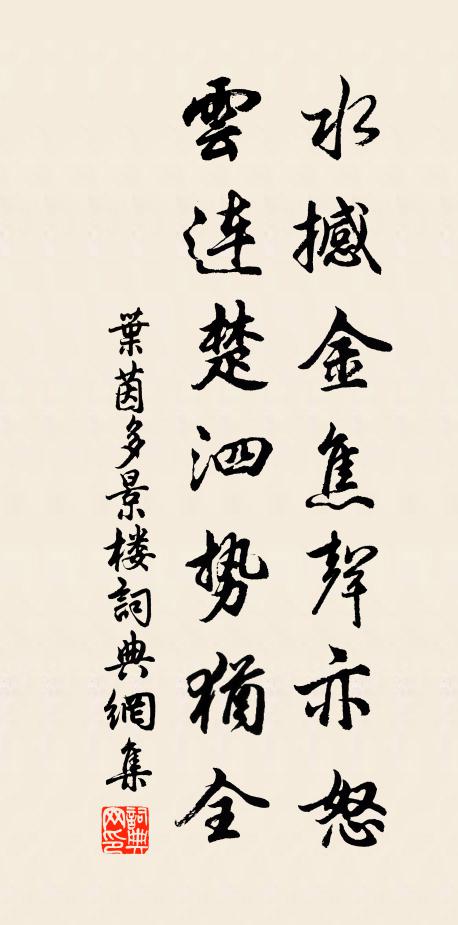 水撼金焦聲亦怒
雲連楚泗势猶全
葉茵多景楼詞典網集
詞典網印